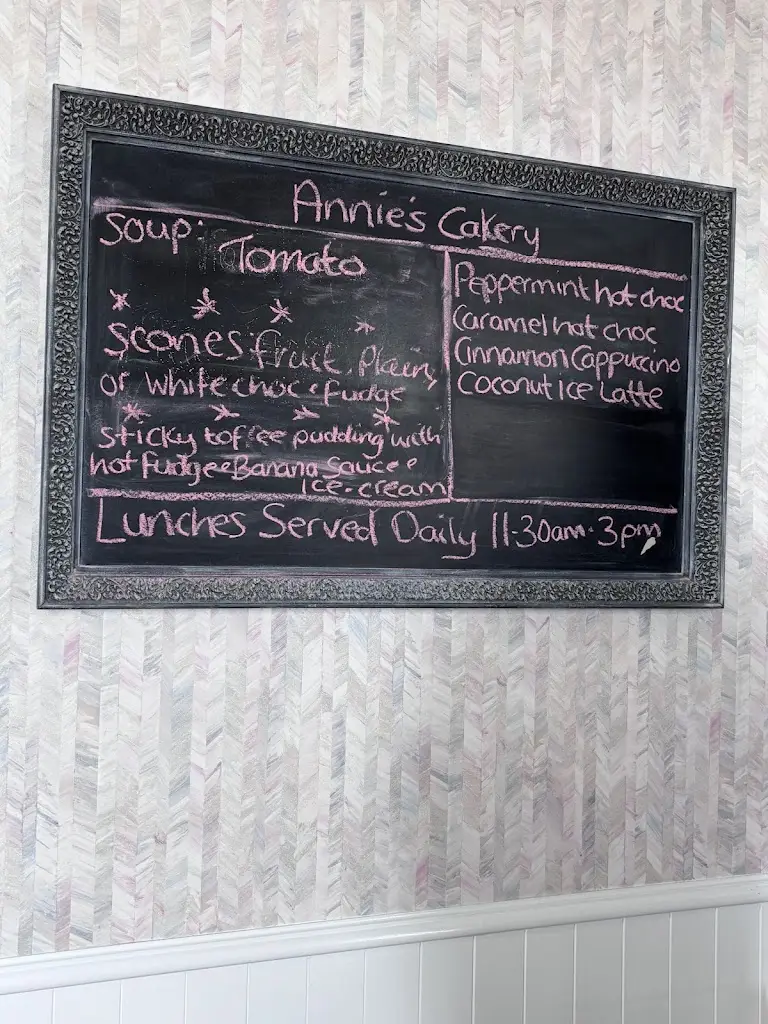 Annie's Cakery
Soup:
Tomato
Scones fruit, Plain,
or white choc & fudge
Sticky toffee pudding with
hot fudge & Banana Sauce &
Ice-cream
Peppermint hot choc
Caramel hot choc
Cinnamon Cappuccino
Coconut Ice Latte
Lunches Served Daily 11-30am-3pm